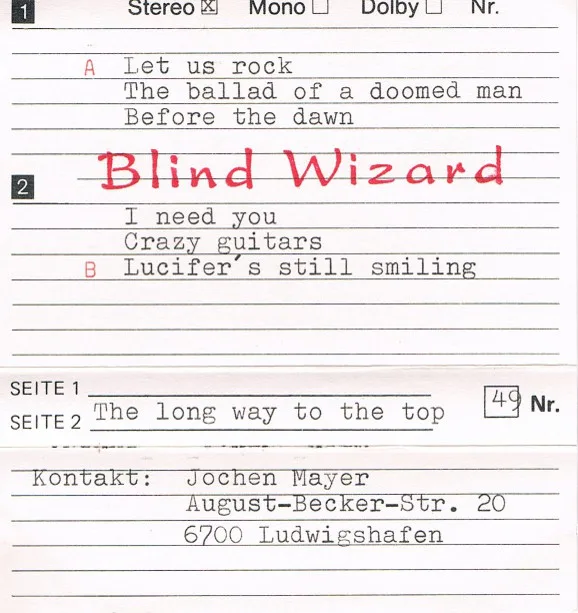 1 Stereo ☒ Mono ☐ Dolby ☐ Nr.
A Let us rock
The ballad of a doomed man
Before the dawn
Blind Wizard
2
I need you
Crazy guitars
B Lucifer's still smiling
SEITE 1
SEITE 2 The long way to the top 49 Nr.
Kontakt: Jochen Mayer
August-Becker-Str. 20
6700 Ludwigshafen